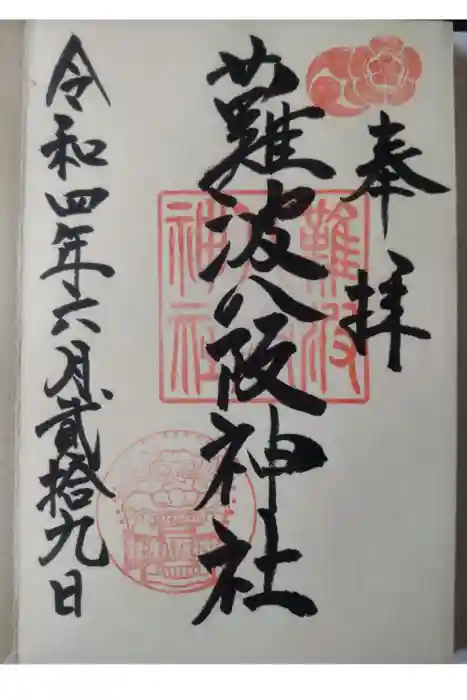 奉拝
難波八阪神社
難波八阪神社
令和四年六月貳拾九日